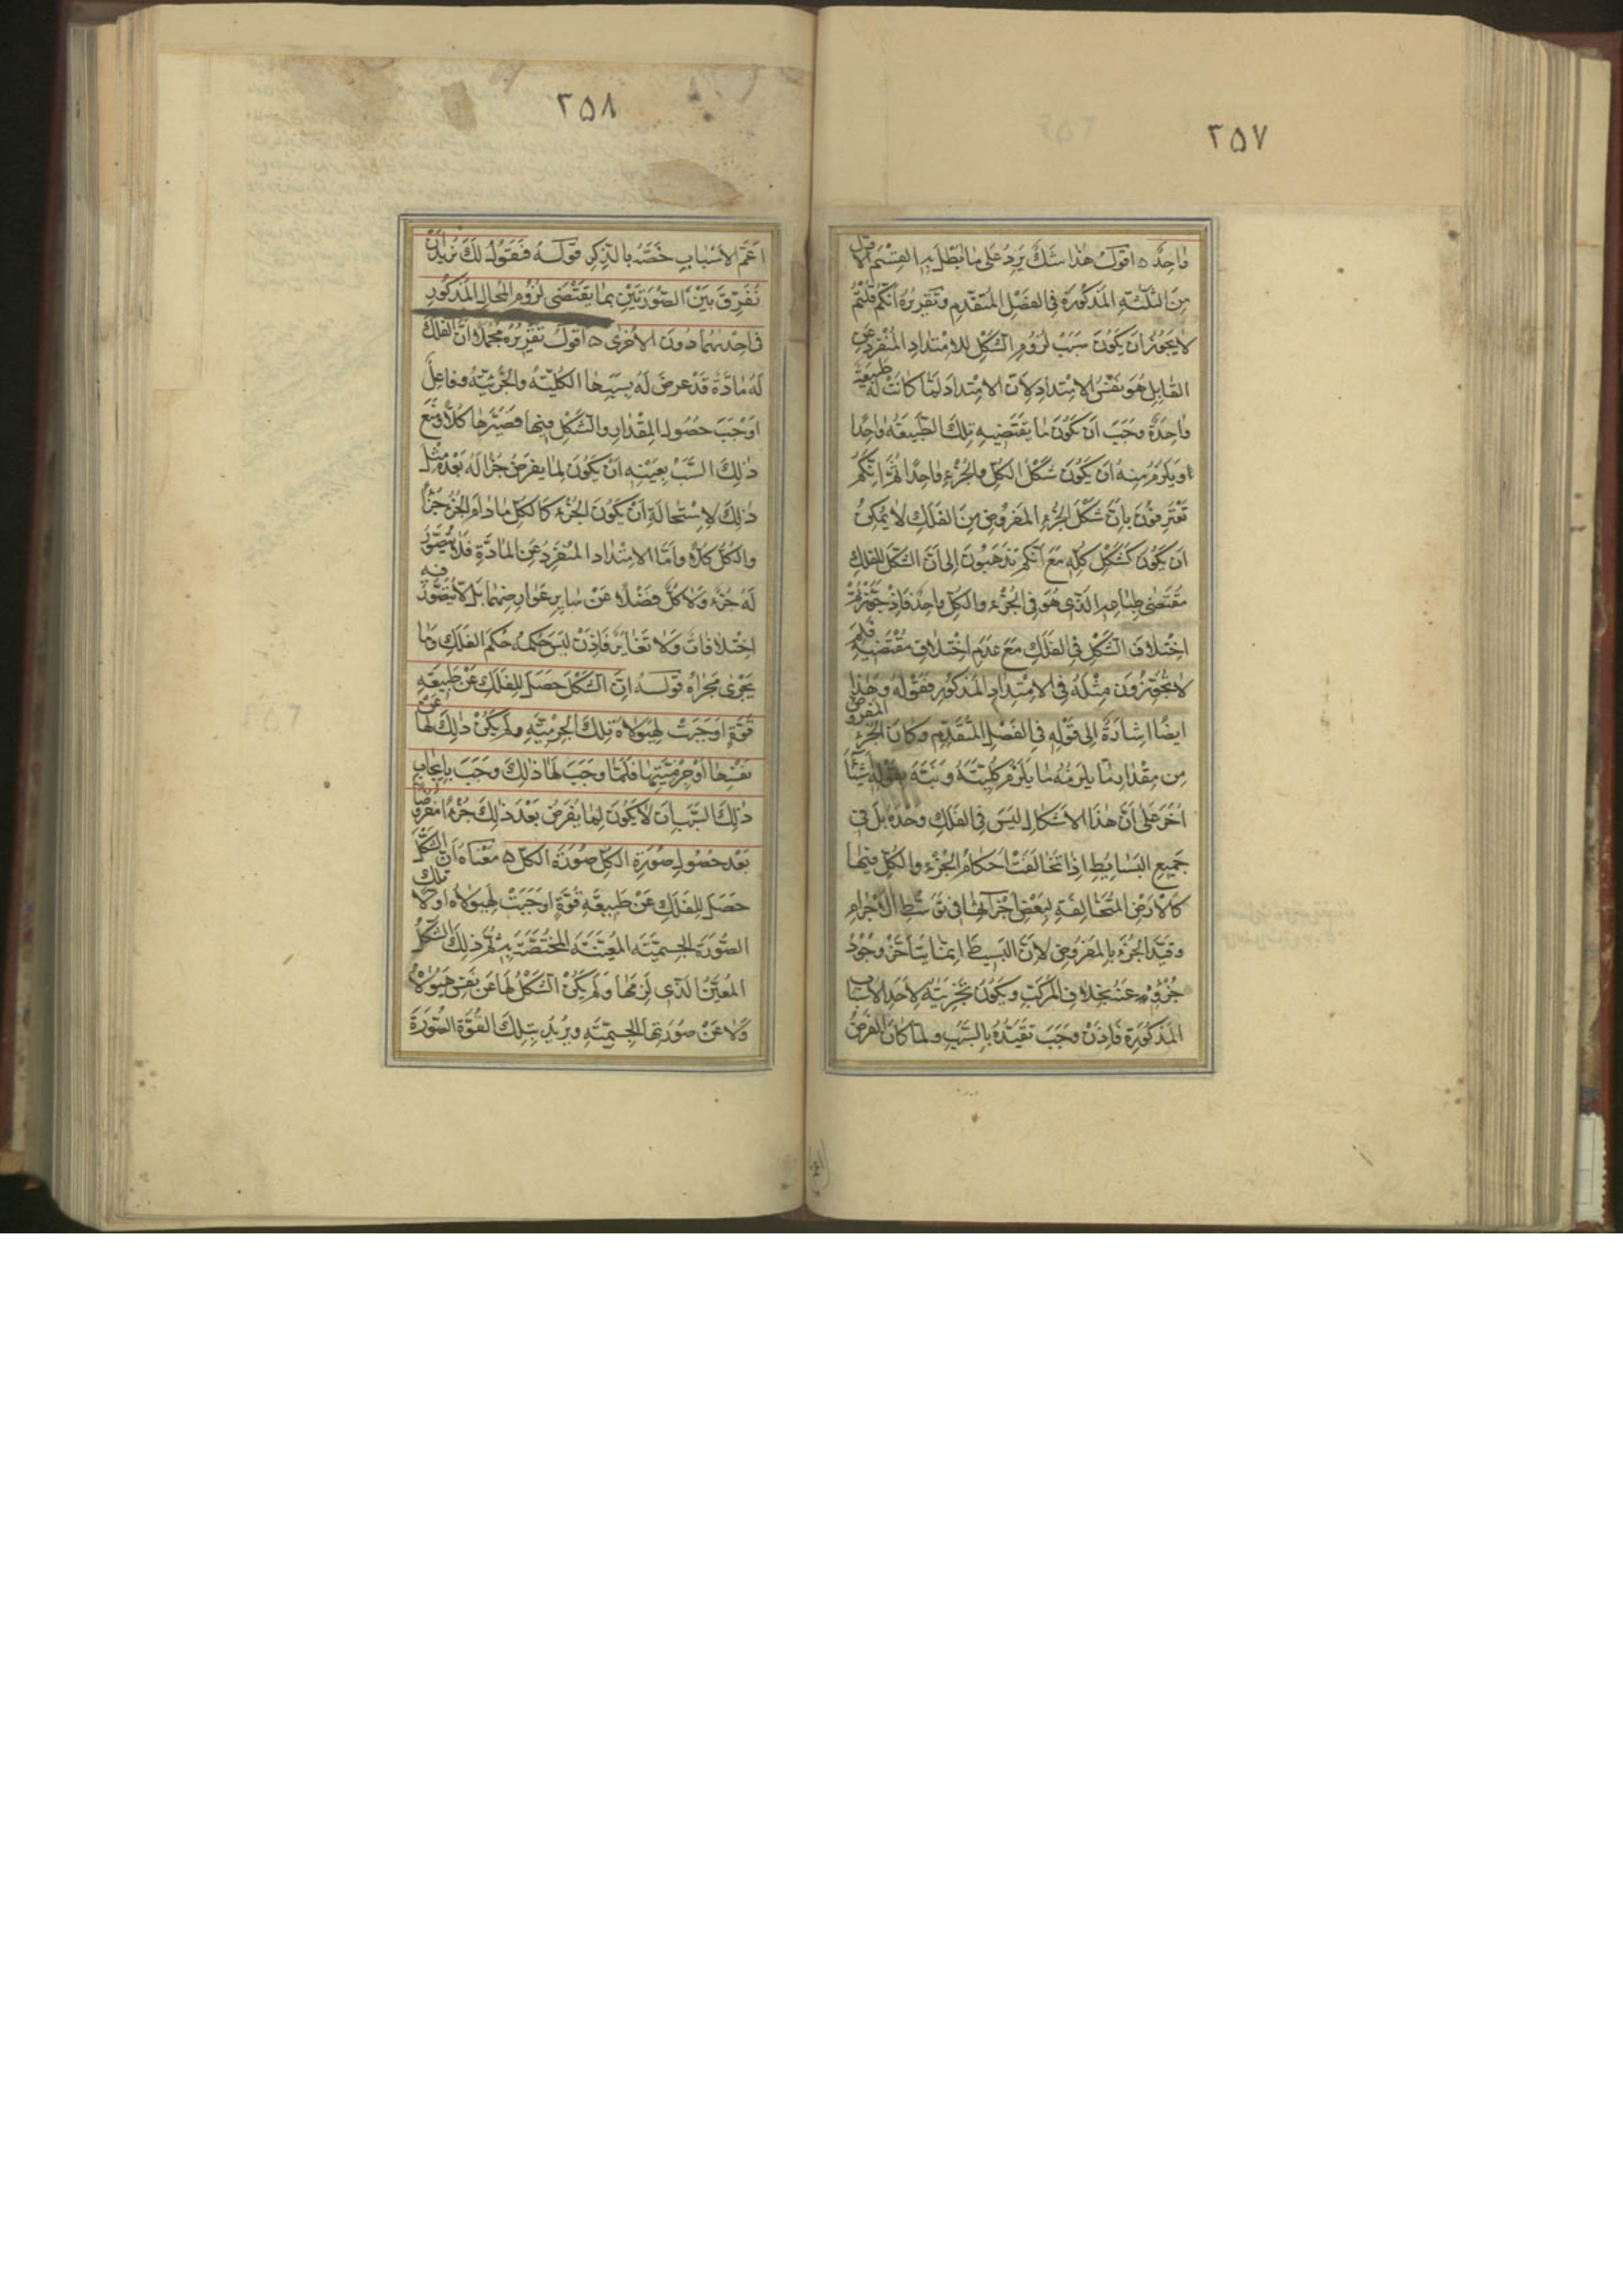 ٢٥٧
واحدٌ ه اقولُ هذا شكٌّ يَرِدُ على ما بطل به القسم الاوّل
مِنَ الثلثةِ المذكورة في الفصل المتقدّم وتقريره انكم قلتم
لا يجوز ان يكون سبب لزوم الشكل للامتداد المنفرد عن
القابل هو نفس الامتداد لانّ الامتداد لمّا كانت له طبيعة
واحدة وجب ان يكون ما يقتضيه تلك الطبيعة واحدًا
ويلزم منه ان يكون شكل الكل والجزء واحدًا ثم انكم
تعترفون بانّ شكل الجزء المفروض من الفلك لا يمكن
ان يكون كشكل كلّه مع انكم تذهبون الى انّ الشكل للفلك
مقتضى طباعه الذى هو في الجزء والكل واحد فاذ جوّزتم
اختلاف الشكل في الفلك مع عدم اختلاف مقتضيه فلِمَ
لا تجوّزون مثله في الامتداد المذكور فقوله وهذا
ايضًا اشارة الى قوله في الفصل المتقدّم وكان الجزء المفروض
من مقدار ما يلزمه ما يلزم كليته ونبّه بقوله شيئًا
اخر على انّ هذا الاشكال ليس في الفلك وحده بل في
جميع البسايط اذا تخالفت احكام الجزء والكل فيها
كالارض المتخالفة لبعض اجزائها في توسّط الاجرام
وقيّد الجزء بالمفروض لانّ البسيط انما يتأخّر وجود
جزؤه عنه بخلاف المركّب ويكون تجزيته لاحد الاسباب
المذكورة فاذن وجب تقيّده بالسبب ولما كان الفرض
٢٥٨
اعمّ الاسباب خصّه بالذكر قوله فنقول لك نريد ان
نفرّق بين الصورتين بما يقتضى لزوم المحال المذكور
في احديهما دون الاخرى ه اقول تقريره مجملا انّ الفلك
له مادّة قد عرض له بسببها الكلية والجزئية وفاعل
اوجب حصول المقدار والشكل فيها فصيّرها كُلًّا ومنع
ذلك السبب بعينه ان يكون لما يفرض جزءا له بعده مثل
ذلك لاستحالة ان يكون الجزء كالكل ما دام الجزء جزءًا
والكل كلًّا واما الامتداد المنفرد عن المادّة فلا يتصوّر
له جزء ولا كلّ فضلا عن ساير عوارضهما بل لا يتصوّر فيه
اختلافات ولا تغاير فاذن ليس حكمه حكم الفلك وما
يجرى مجراه قوله انّ الشكل حصل للفلك عن طبيعة
قوّة اوجبت لهيولاه تلك الجرمية ولم يكن ذلك لها عن
نفسها او جرميتها فلمّا وجب لها ذلك وجب بايجاب
ذلك السبب ان لا يكون لما يفرض بعد ذلك جزءًا مفروضًا
بعد حصول صورة الكل صورة الكل ه معناه انّ الشكل
حصل للفلك عن طبيعة قوّة اوجبت لهيولاه اولًا تلك
الصورة الجسمية المعيّنة المختصّة به ثم ذلك الشكل
المعيّن الذى لزمها ولم يكن الشكل لها عن نفس هيولاه
ولا عن صورتها الجسمية ويريد بتلك القوّة الصورة